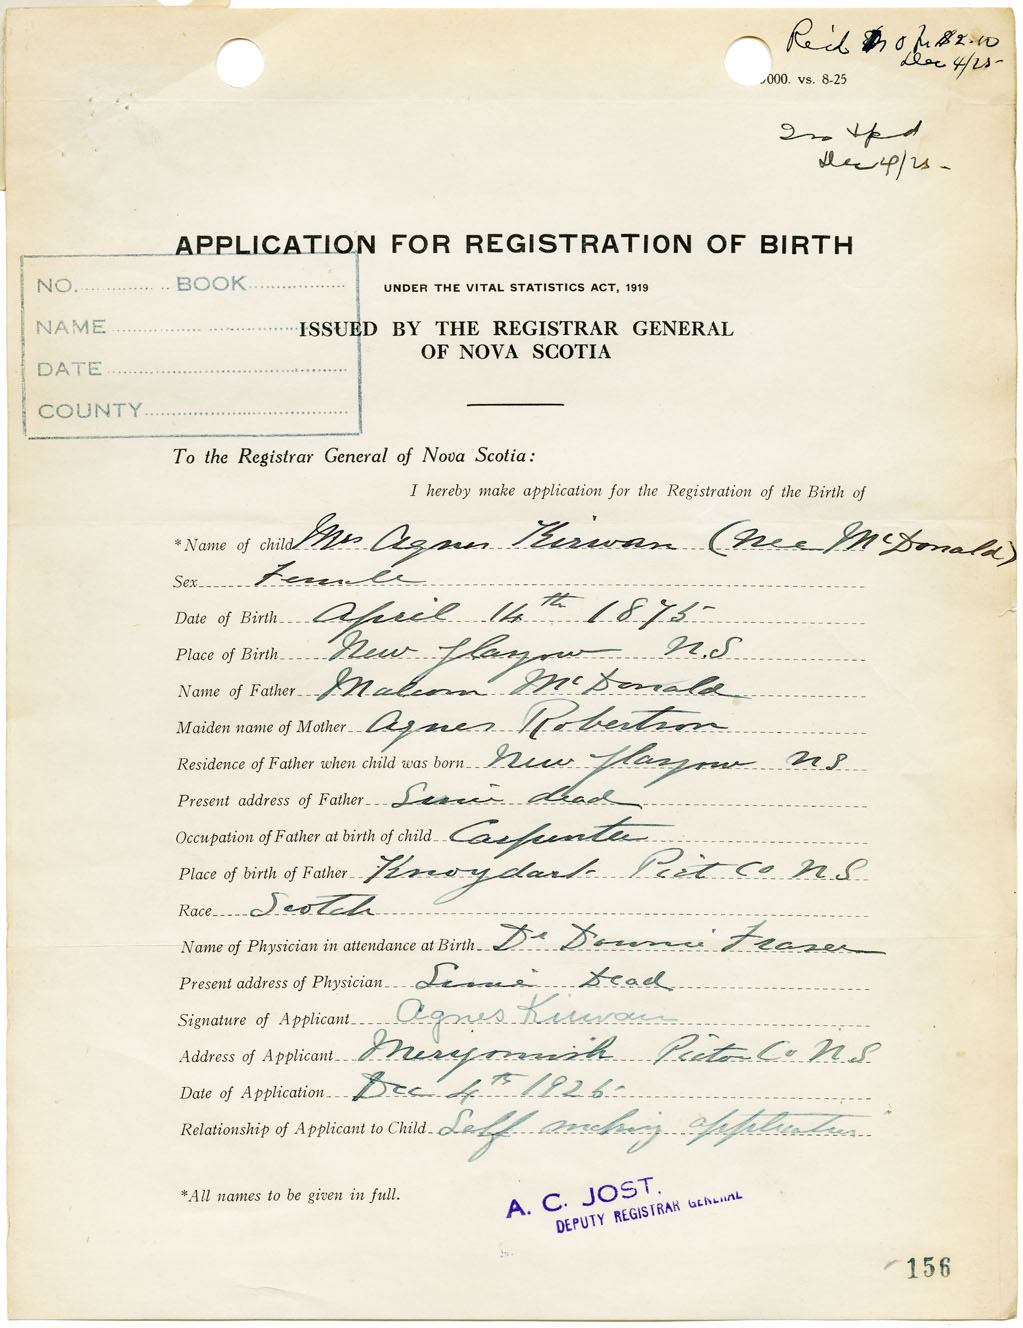 Rec'd $2.00
Dec 4/25-
000. vs. 8-25
Dec 4/25-
APPLICATION FOR REGISTRATION OF BIRTH
UNDER THE VITAL STATISTICS ACT, 1919
ISSUED BY THE REGISTRAR GENERAL
OF NOVA SCOTIA
NO. BOOK
NAME
DATE
COUNTY
To the Registrar General of Nova Scotia:
I hereby make application for the Registration of the Birth of
*Name of child Mrs Agnes Kirwan (nee McDonald)
Sex Female
Date of Birth April 14th 1875-
Place of Birth New Glasgow N.S
Name of Father Malcom McDonald
Maiden name of Mother Agnes Robertson
Residence of Father when child was born New Glasgow NS
Present address of Father Since dead
Occupation of Father at birth of child Carpenter
Place of birth of Father Knoydart Pict Co N S
Race Scotch
Name of Physician in attendance at Birth Dr Downie Fraser
Present address of Physician Since Dead
Signature of Applicant Agnes Kirwan
Address of Applicant Merigomish Pictou Co N S
Date of Application Dec 4th 1925-
Relationship of Applicant to Child Self making application
*All names to be given in full.
A. C. JOST.
DEPUTY REGISTRAR GENERAL
156